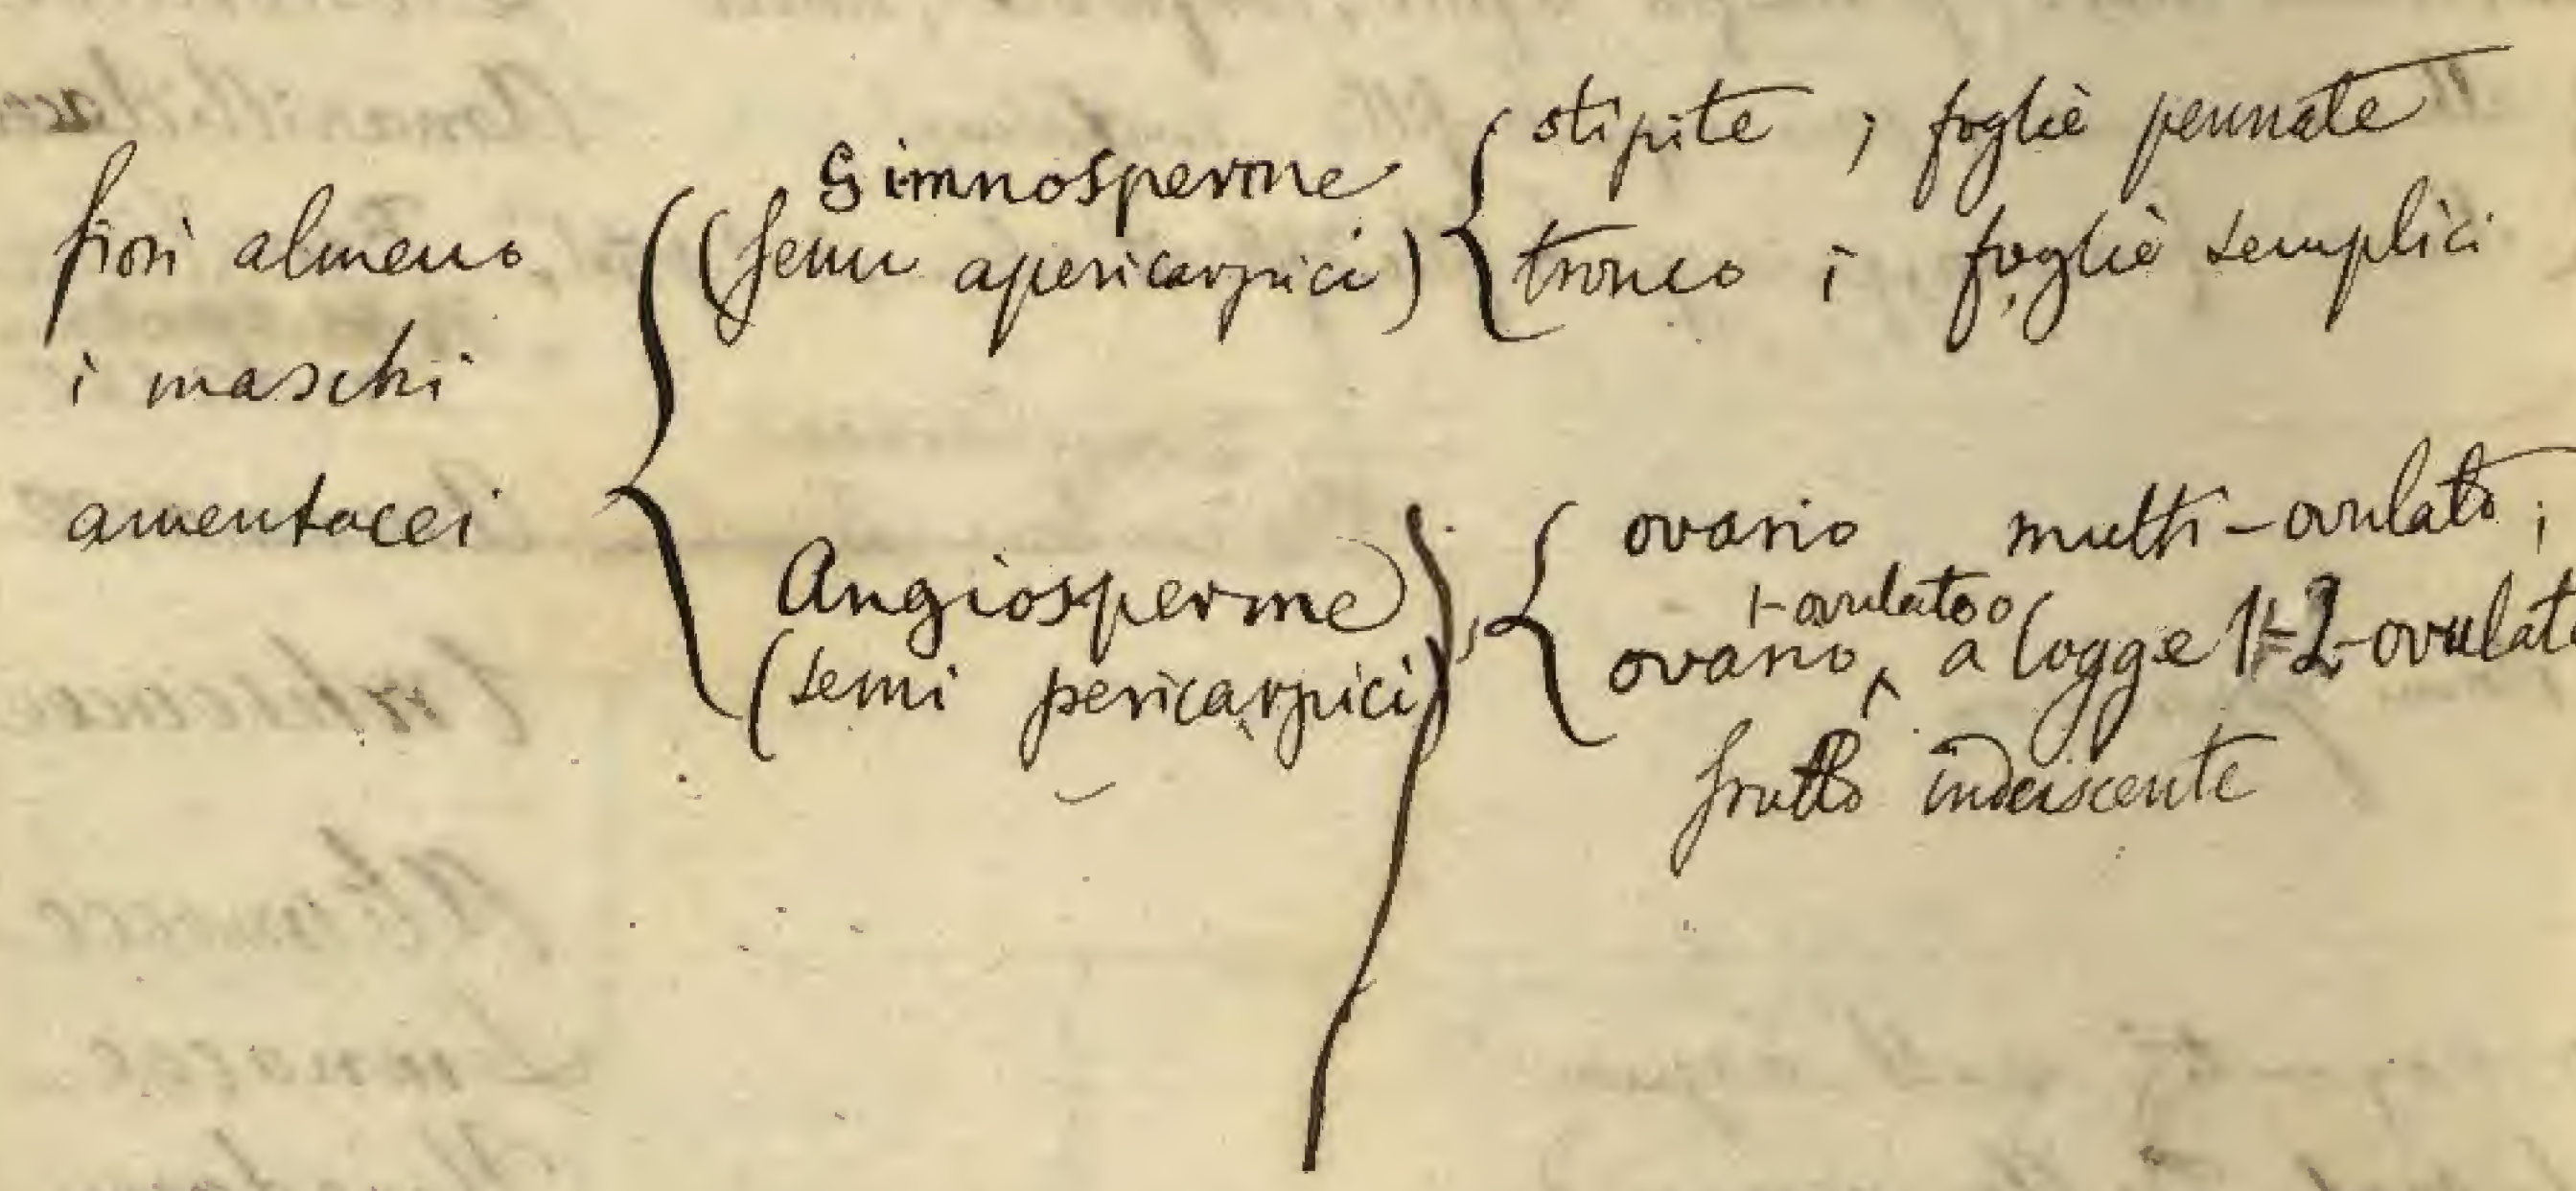 fiori almeno
i maschi
amentacei
Gimnosperme
(semi apericarpici)
stipite ; foglie pennate
tronco ; foglie semplici
Angiosperme
(semi pericarpici)
ovario multi-ovulato ;
1-ovulato o
ovario, a logge 1-2-ovulate
frutto indeiscente